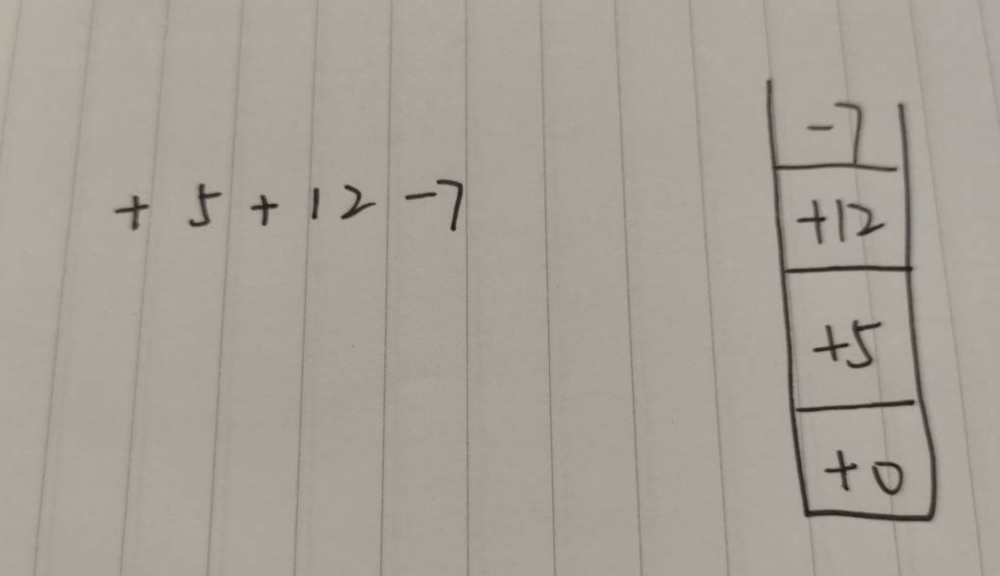 + 5 + 12 -7
-7
+12
+5
+0